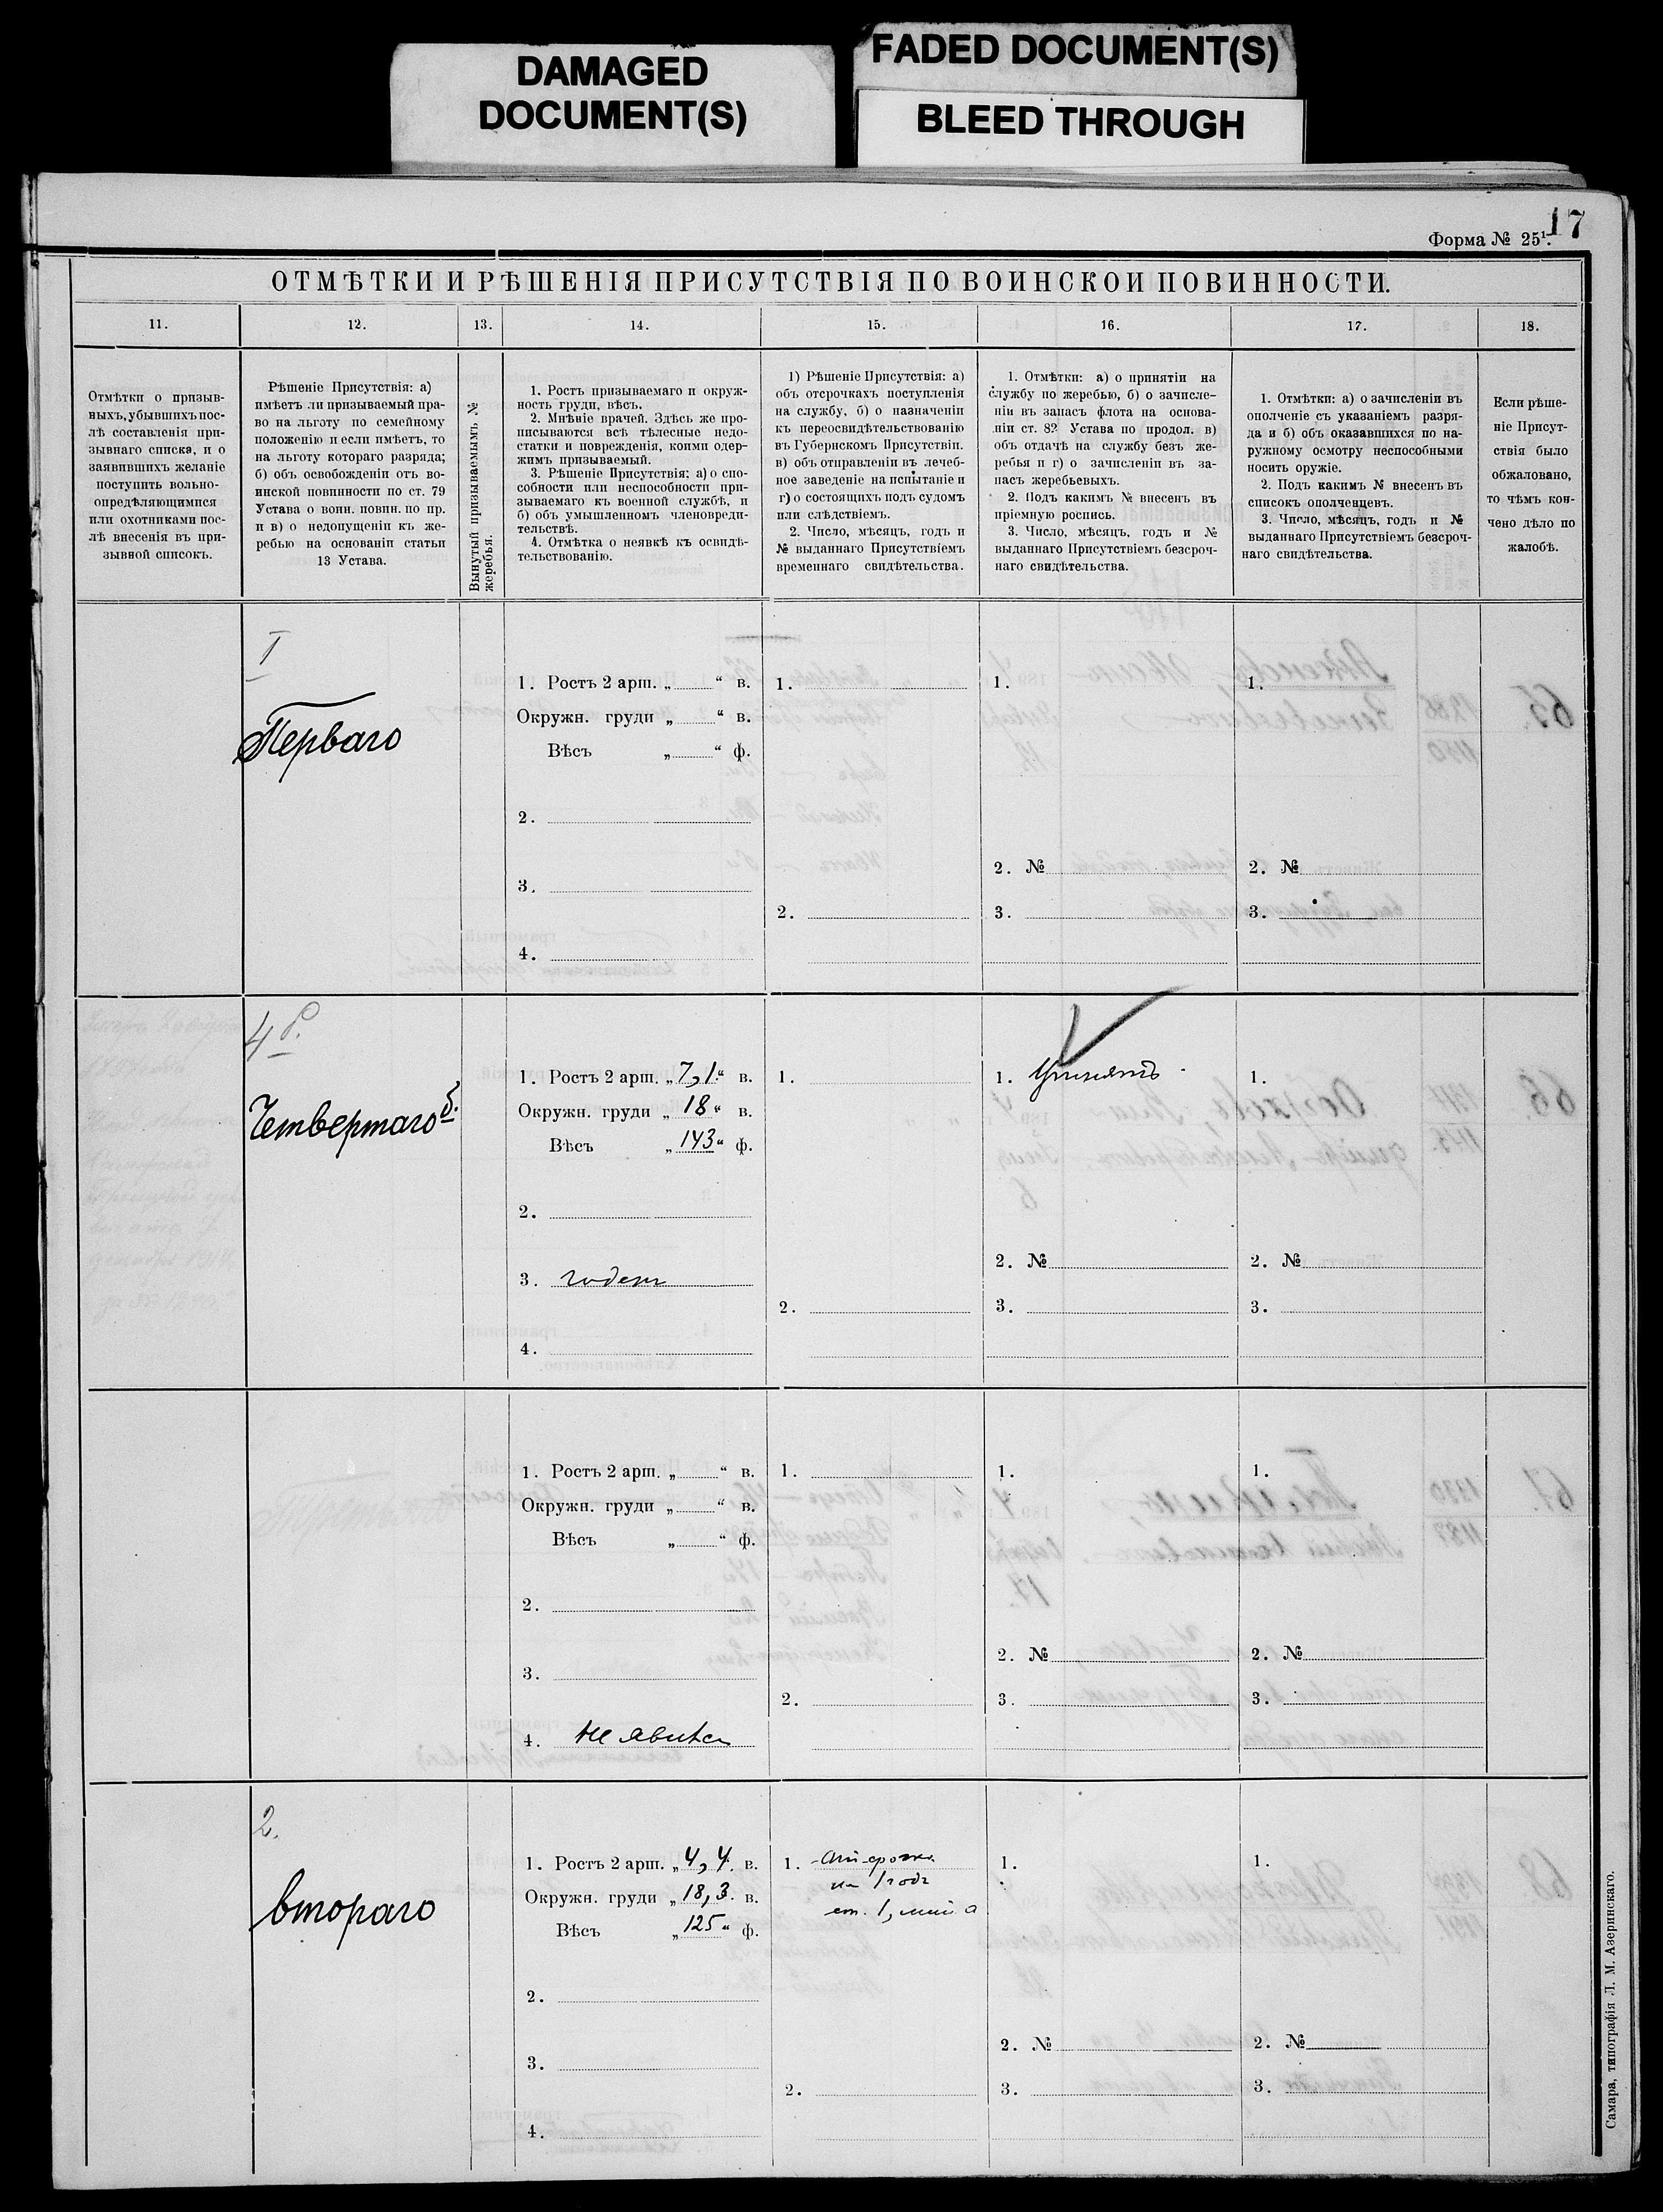 DAMAGED
DOCUMENT(S)
FADED DOCUMENT(S)
BLEED THROUGH
17
Форма № 25¹.
ОТМѢТКИ И РѢШЕНІЯ ПРИСУТСТВІЯ ПО ВОИНСКОИ ПОВИННОСТИ.
11.
12.
13.
14.
15.
16.
17.
18.
Отмѣтки о призыв-
ныхъ, убывшихъ пос-
лѣ составленія при-
зывнаго списка, и о
заявившихъ желаніе
поступить вольно-
опредѣляющимися
или охотниками пос-
лѣ внесенія въ при-
зывной списокъ.
Рѣшеніе Присутствія: а)
имѣетъ ли призываемый пра-
во на льготу по семейному
положенію и если имѣетъ, то
на льготу котораго разряда;
б) объ освобожденіи отъ во-
инской повинности по ст. 79
Устава о воин. повин. по пр.
и в) о недопущеніи къ же-
ребью на основаніи статьи
13 Устава.
Вынутый призываемымъ №
жеребья.
1. Ростъ призываемаго и окруж-
ность груди, вѣсъ.
2. Мнѣніе врачей. Здѣсь же про-
писываются всѣ тѣлесные недо-
статки и поврежденія, коими одер-
жимъ призываемый.
3. Рѣшеніе Присутствія: а) о спо-
собности или неспособности при-
зываемаго къ военной службѣ, и
б) объ умышленномъ членовреди-
тельствѣ.
4. Отмѣтка о неявкѣ къ освидѣ-
тельствованію.
1) Рѣшеніе Присутствія: а)
объ отсрочкахъ поступленія
на службу, б) о назначеніи
къ переосвидѣтельствованію
въ Губернскомъ Присутствіи.
в) объ отправленіи въ лечеб-
ное заведеніе на испытаніе и
г) о состоящихъ подъ судомъ
или слѣдствіемъ.
2. Число, мѣсяцъ, годъ и
№ выданнаго Присутствіемъ
временнаго свидѣтельства.
1. Отмѣтки: а) о принятіи на
службу по жеребью, б) о зачисле-
ніи въ запасъ флота на основа-
ніи ст. 82 Устава по продол. в)
объ отдачѣ на службу безъ же-
ребья и г) о зачисленіи въ за-
пасъ жеребьевыхъ.
2. Подъ какимъ № внесенъ въ
пріемную роспись.
3. Число, мѣсяцъ, годъ и №
выданнаго Присутствіемъ безсроч-
наго свидѣтельства.
1. Отмѣтки: а) о зачисленіи въ
ополченіе съ указаніемъ разря-
да и б) объ оказавшихся по на-
ружному осмотру неспособными
носить оружіе.
2. Подъ какимъ № внесенъ въ
списокъ ополченцевъ.
3. Число, мѣсяцъ, годъ и №
выданнаго Присутствіемъ безсроч-
наго свидѣтельства.
Если рѣше-
ніе Присут-
ствія было
обжаловано,
то чѣмъ кон-
чено дѣло по
жалобѣ.
I
Перваго
1. Ростъ 2 арш. „ “ в.
Окружн. груди „ “ в.
Вѣсъ „ “ ф.
2.
3.
4.
1.
2.
1.
2. №
3.
1.
2. №
3.
4 р.
Четвертаго б.
1. Ростъ 2 арш. „7,1“ в.
Окружн. груди „18“ в.
Вѣсъ „143“ ф.
2.
3. годен
4.
1.
2.
1. Принятъ
2. №
3.
1.
2. №
3.
1. Ростъ 2 арш. „ “ в.
Окружн. груди „ “ в.
Вѣсъ „ “ ф.
2.
3.
4. не явился
1.
2.
1.
2. №
3.
1.
2. №
3.
2.
второго
1. Ростъ 2 арш. „4,4. в.
Окружн. груди „18,3. в.
Вѣсъ „125“ ф.
2.
3.
4.
1. Отсрочка
на 1 годъ
2.
1.
2. №
3.
1.
2. №
3.
Самара, типографія Л. М. Азеринскаго.